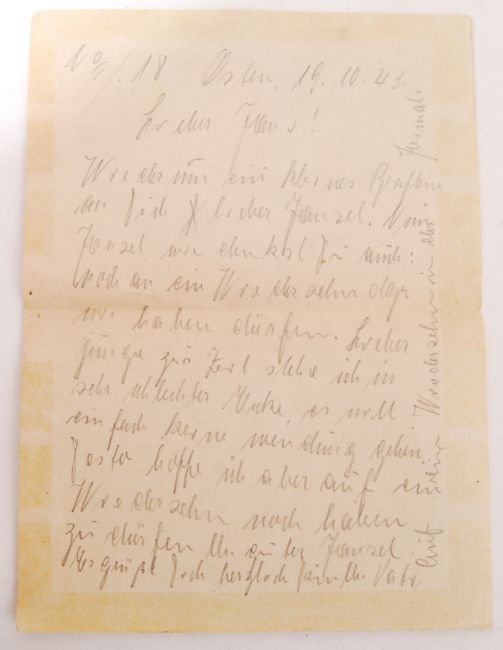 No/. 18 Osten, 19.10.43.
Lieber Hans!
Wiederum ein kleines Brieflein
an Dich lieber Hansel. Nun
Hansel wie denkst Du auch:
noch an ein Wiedersehn das
wir haben dürfen. Lieber
Junge zur Zeit stehe ich in
sehr schlechter Ecke, es will
einfach keine wendung geben.
Desto hoffe ich aber auf ein
Wiedersehn noch haben
zu dürfen lb. guter Hansel!
Es grüßt Dich herzlich Dein lb. Vater
Auf ein Wiedersehn in der Heimat.